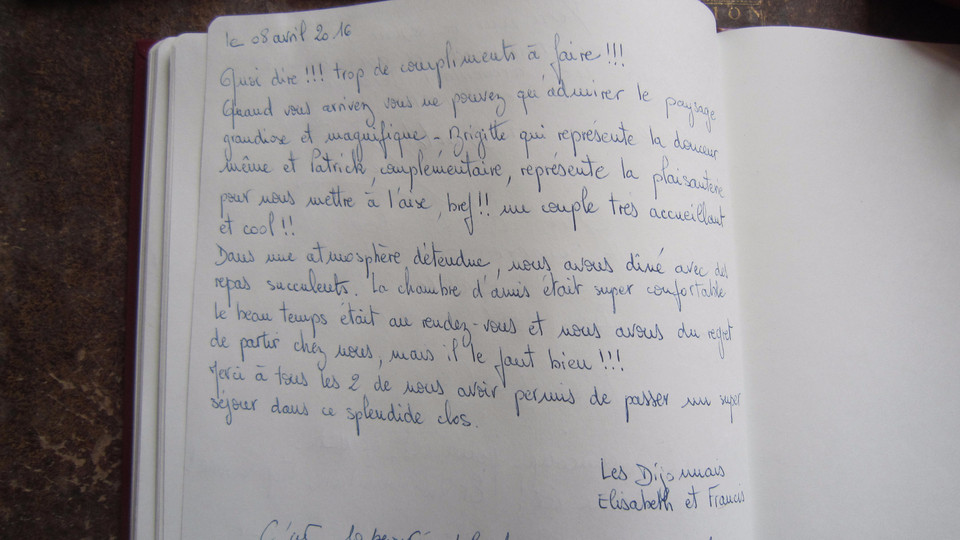 le 08 avril 2016
Quoi dire !!! trop de compliments à faire !!!
Quand vous arrivez vous ne pouvez qu'admirer le paysage
grandiose et magnifique - Brigitte qui représente la douceur
même et Patrick, complémentaire, représente la plaisanterie
pour nous mettre à l'aise, bref !! un couple très accueillant
et cool !!
Dans une atmosphère détendue, nous avons dîné avec des
repas succulents. La chambre d'amis était super confortable
le beau temps était au rendez-vous et nous avons du regret
de partir chez nous, mais il le faut bien !!!
Merci à tous les 2 de nous avoir permis de passer un super
séjour dans ce splendide clos.
Les Dijonnais
Elisabeth et Francis
C'était